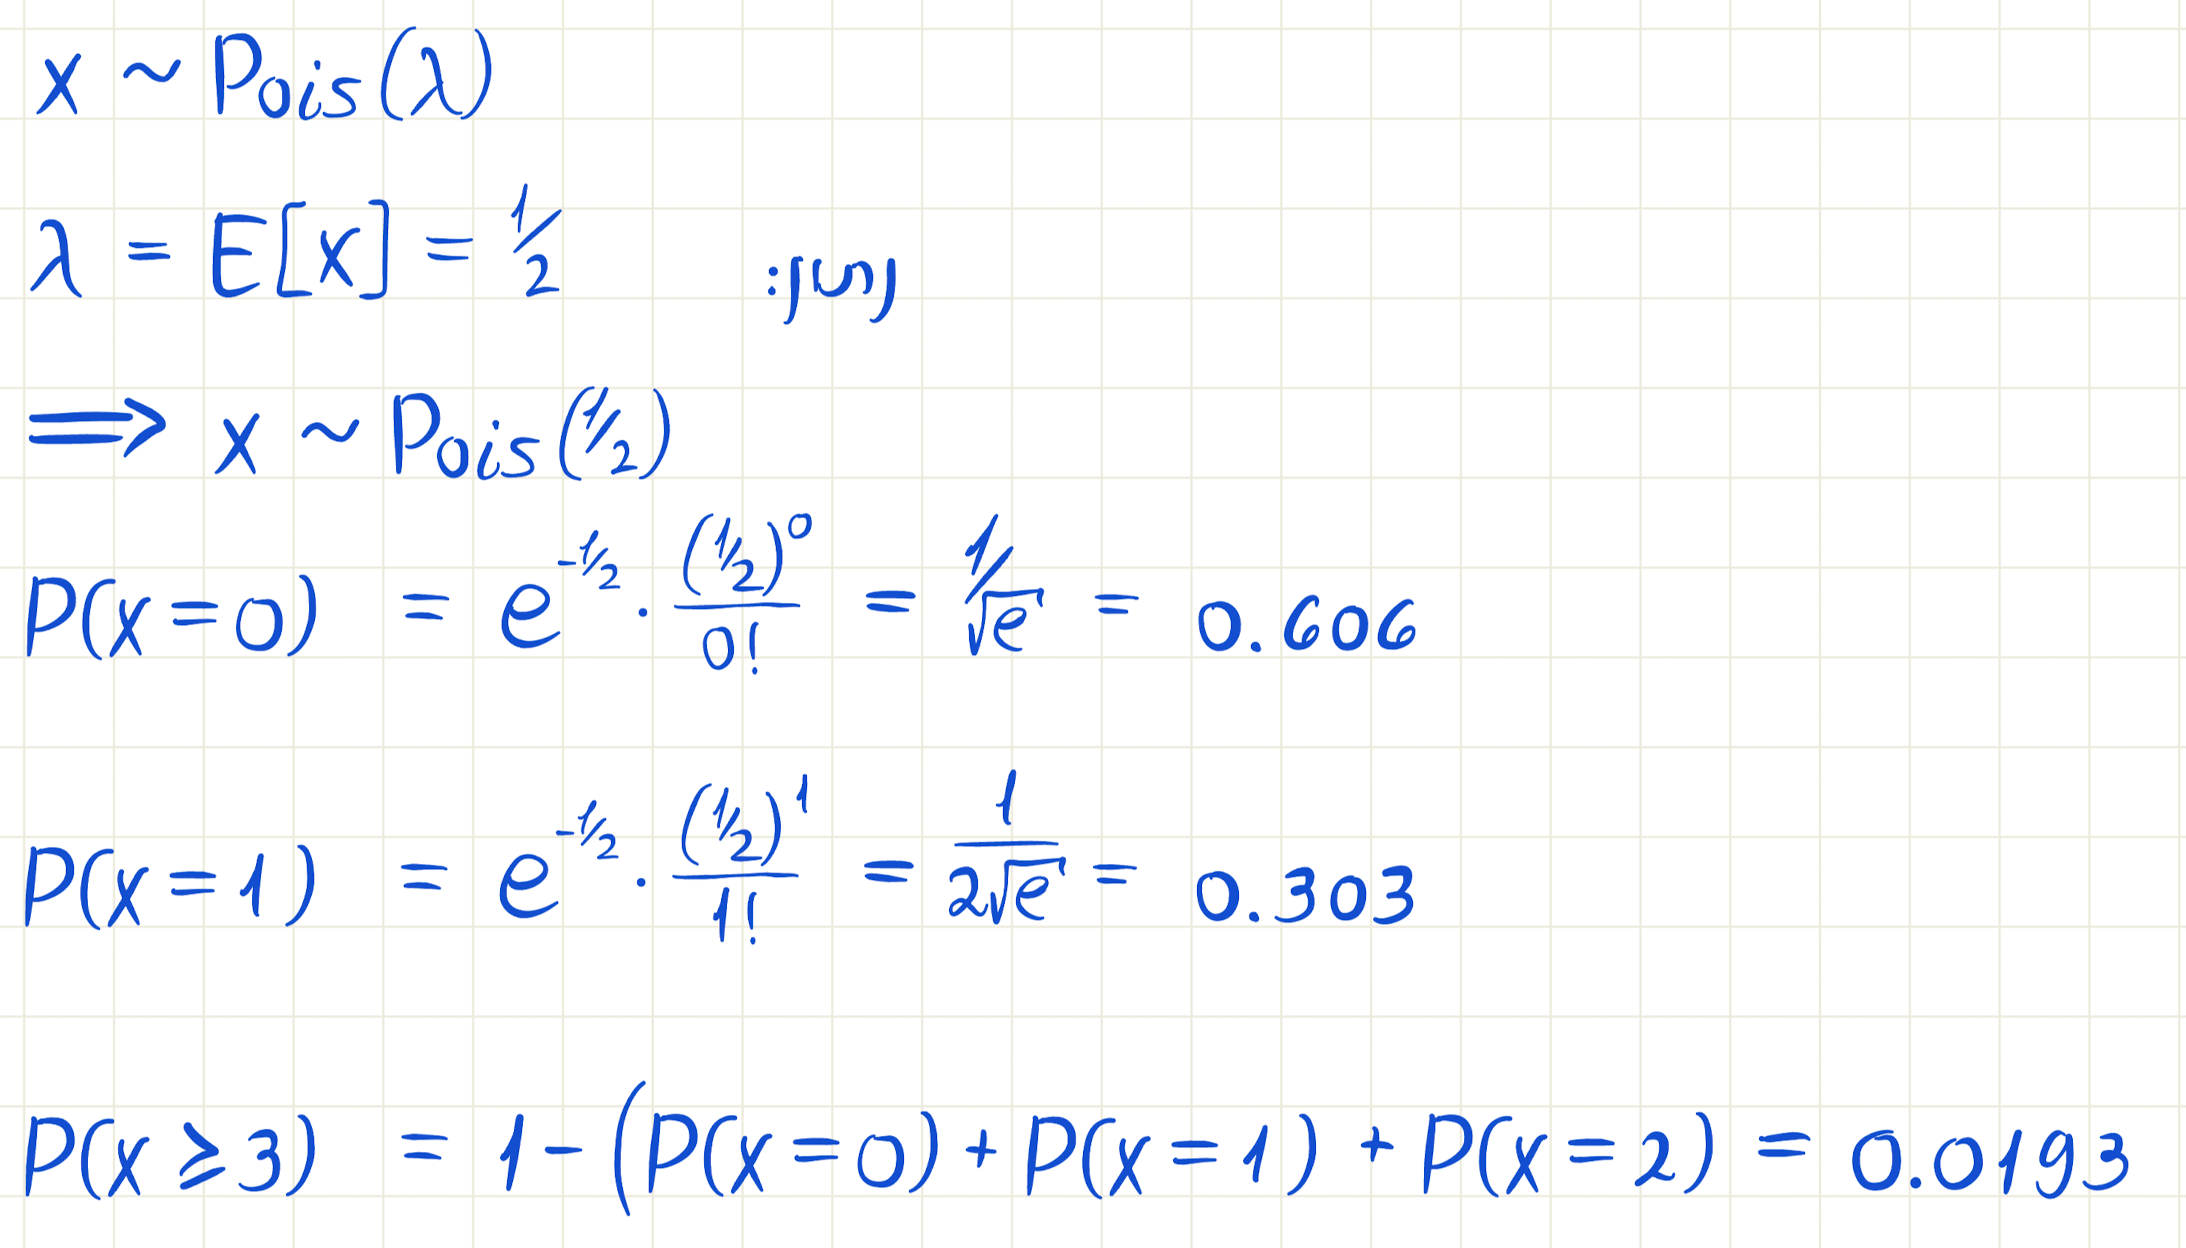 x ~ Pois(λ)
λ = E[x] = 1/2
נתון:
⟹ x ~ Pois(1/2)
P(x=0) = e^{-1/2} · (1/2)^0 / 0! = 1/√e = 0.606
P(x=1) = e^{-1/2} · (1/2)^1 / 1! = 1/(2√e) = 0.303
P(x ≥ 3) = 1 - (P(x=0) + P(x=1) + P(x=2) = 0.0193